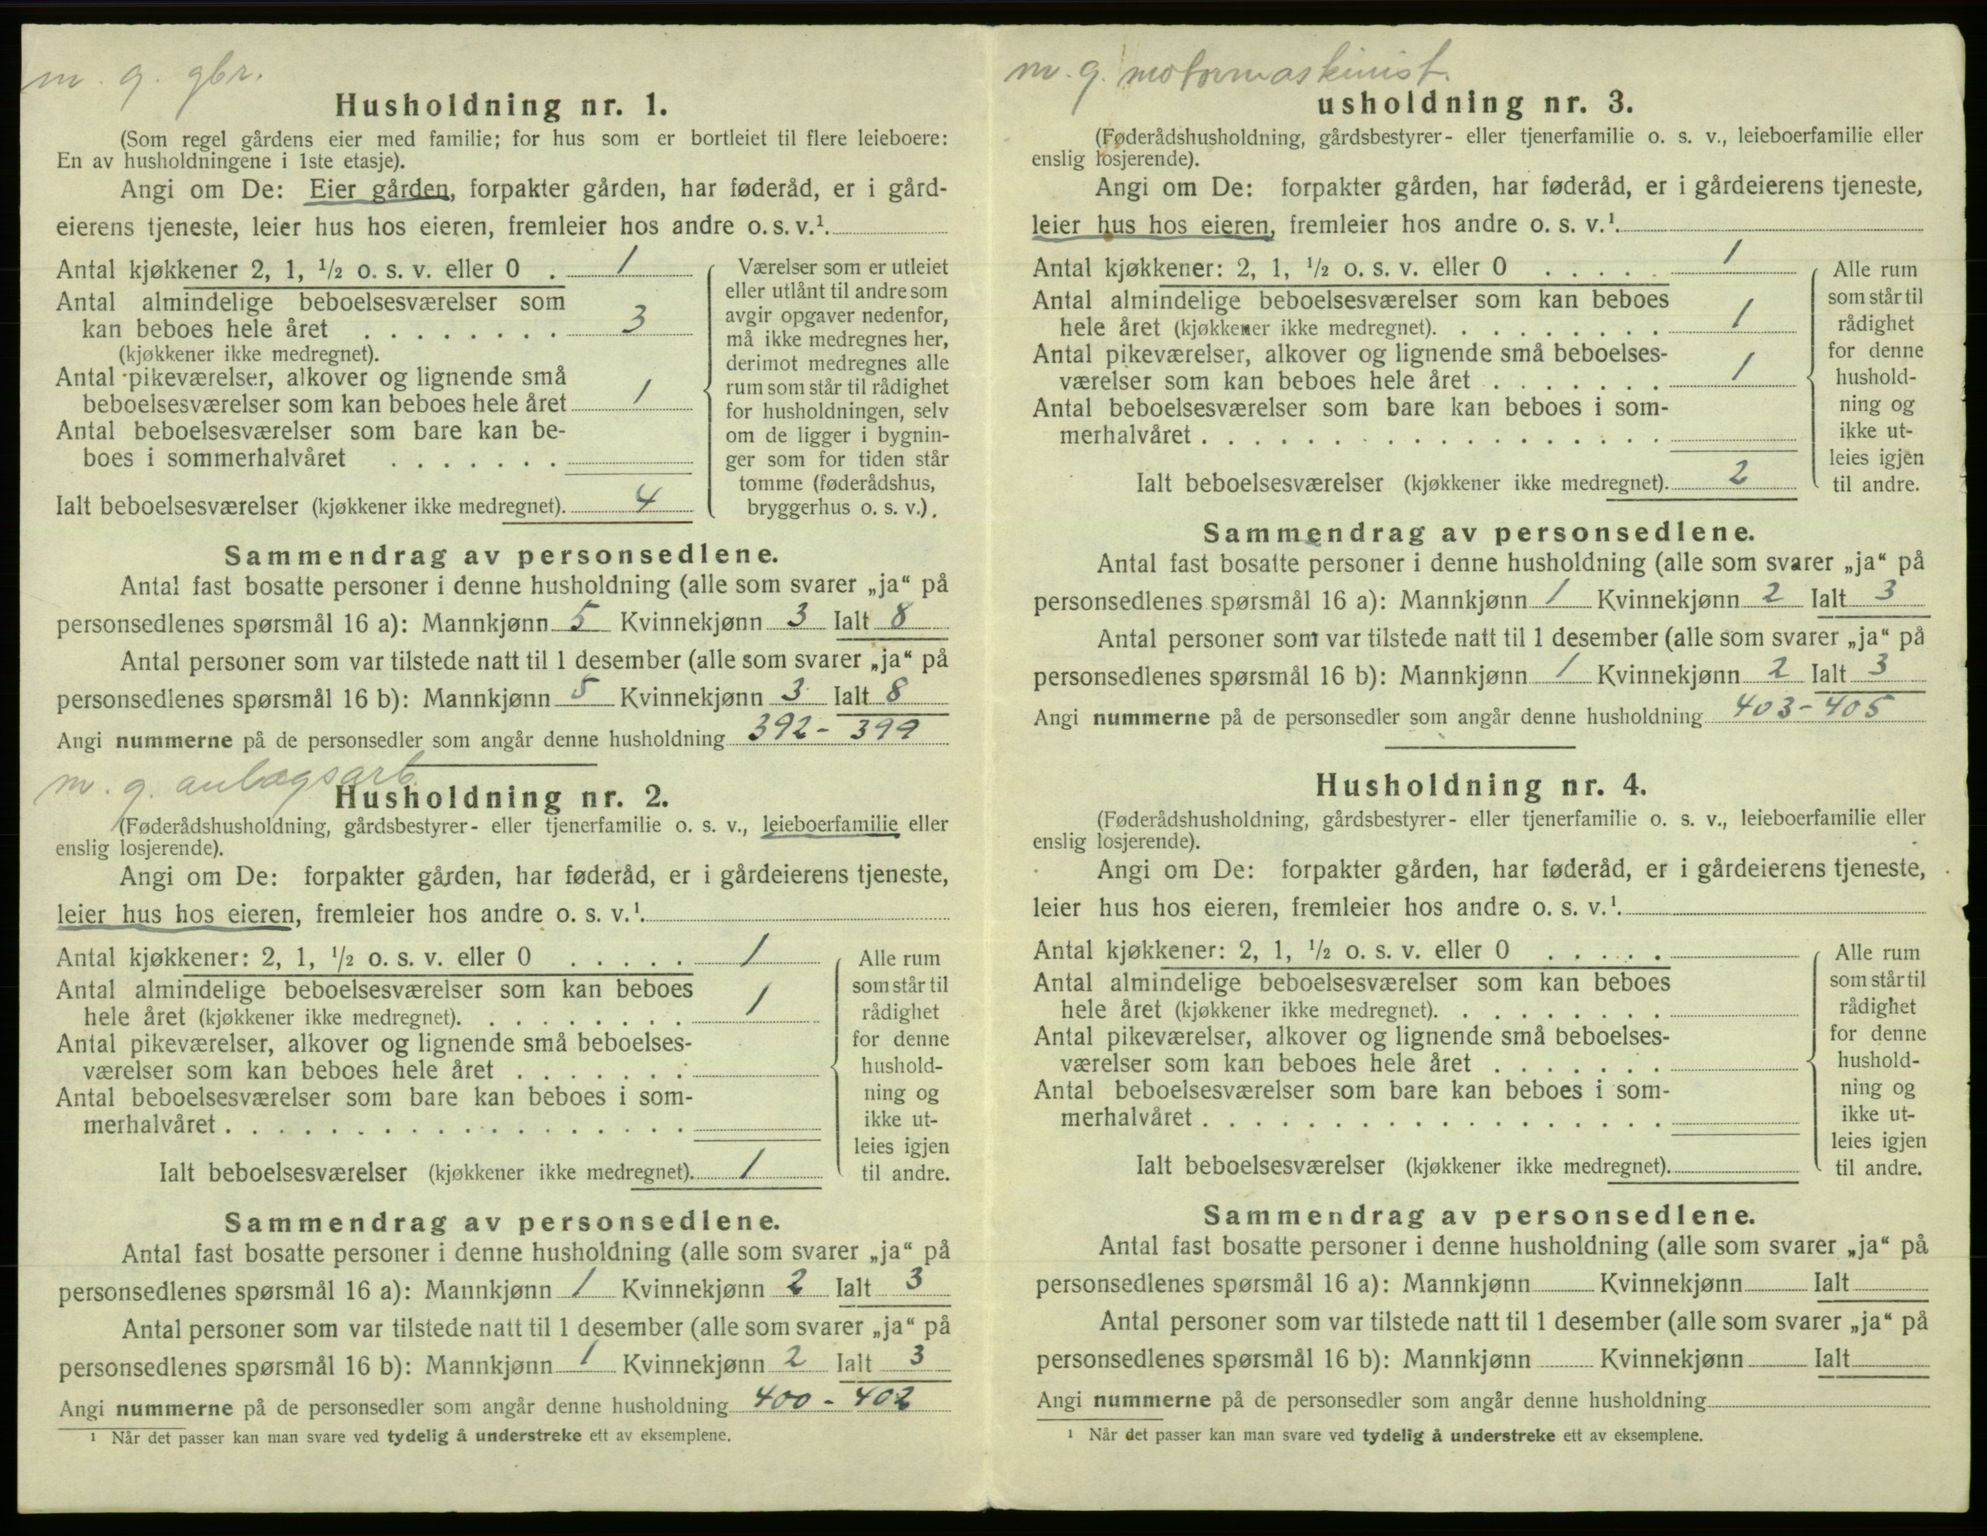 m. g. gbr.
Husholdning nr. 1.
(Som regel gårdens eier med familie; for hus som er bortleiet til flere leieboere:
En av husholdningene i 1ste etasje).
Angi om De: Eier gården, forpakter gården, har føderåd, er i gård-
eierens tjeneste, leier hus hos eieren, fremleier hos andre o. s. v.¹.
Antal kjøkkener 2, 1, ½ o. s. v. eller 0 . 1
Antal almindelige beboelsesværelser som
kan beboes hele året . . . . . . . . 3
(kjøkkener ikke medregnet).
Antal pikeværelser, alkover og lignende små
beboelsesværelser som kan beboes hele året 1
Antal beboelsesværelser som bare kan be-
boes i sommerhalvåret . . . . . . .
Ialt beboelsesværelser (kjøkkener ikke medregnet). 4
Værelser som er utleiet
eller utlånt til andre som
avgir opgaver nedenfor,
må ikke medregnes her,
derimot medregnes alle
rum som står til rådighet
for husholdningen, selv
om de ligger i bygnin-
ger som for tiden står
tomme (føderådshus,
bryggerhus o. s. v.).
Sammendrag av personsedlene.
Antal fast bosatte personer i denne husholdning (alle som svarer „ja“ på
personsedlenes spørsmål 16 a): Mannkjønn 5 Kvinnekjønn 3 Ialt 8
Antal personer som var tilstede natt til 1 desember (alle som svarer „ja“ på
personsedlenes spørsmål 16 b): Mannkjønn 5 Kvinnekjønn 3 Ialt 8
Angi nummerne på de personsedler som angår denne husholdning 392 - 399
m. g. anlægsarb.
Husholdning nr. 2.
(Føderådshusholdning, gårdsbestyrer- eller tjenerfamilie o. s. v., leieboerfamilie eller
enslig losjerende).
Angi om De: forpakter gården, har føderåd, er i gårdeierens tjeneste,
leier hus hos eieren, fremleier hos andre o. s. v.¹.
Antal kjøkkener: 2, 1, ½ o. s. v. eller 0 . . . . . 1
Antal almindelige beboelsesværelser som kan beboes
hele året (kjøkkener ikke medregnet). . . . . . . . . 1
Antal pikeværelser, alkover og lignende små beboelses-
værelser som kan beboes hele året . . . . . . .
Antal beboelsesværelser som bare kan beboes i som-
merhalvåret . . . . . . . . . . . . . . . . . .
Ialt beboelsesværelser (kjøkkener ikke medregnet). 1
Alle rum
som står til
rådighet
for denne
hushold-
ning og
ikke ut-
leies igjen
til andre.
Sammendrag av personsedlene.
Antal fast bosatte personer i denne husholdning (alle som svarer „ja“ på
personsedlenes spørsmål 16 a): Mannkjønn 1 Kvinnekjønn 2 Ialt 3
Antal personer som var tilstede natt til 1 desember (alle som svarer „ja“ på
personsedlenes spørsmål 16 b): Mannkjønn 1 Kvinnekjønn 2 Ialt 3
Angi nummerne på de personsedler som angår denne husholdning 400 - 402
¹ Når det passer kan man svare ved tydelig å understreke ett av eksemplene.
m. g. motormaskinist.
usholdning nr. 3.
(Føderådshusholdning, gårdsbestyrer- eller tjenerfamilie o. s. v., leieboerfamilie eller
enslig losjerende).
Angi om De: forpakter gården, har føderåd, er i gårdeierens tjeneste,
leier hus hos eieren, fremleier hos andre o. s. v.¹.
Antal kjøkkener: 2, 1, ½ o. s. v. eller 0 . . . . . 1
Antal almindelige beboelsesværelser som kan beboes
hele året (kjøkkener ikke medregnet). . . . . . . . . 1
Antal pikeværelser, alkover og lignende små beboelses-
værelser som kan beboes hele året . . . . . . . 1
Antal beboelsesværelser som bare kan beboes i som-
merhalvåret . . . . . . . . . . . . . . . . . .
Ialt beboelsesværelser (kjøkkener ikke medregnet). 2
Alle rum
som står til
rådighet
for denne
hushold-
ning og
ikke ut-
leies igjen
til andre.
Sammendrag av personsedlene.
Antal fast bosatte personer i denne husholdning (alle som svarer „ja“ på
personsedlenes spørsmål 16 a): Mannkjønn 1 Kvinnekjønn 2 Ialt 3
Antal personer som var tilstede natt til 1 desember (alle som svarer „ja“ på
personsedlenes spørsmål 16 b): Mannkjønn 1 Kvinnekjønn 2 Ialt 3
Angi nummerne på de personsedler som angår denne husholdning 403 - 405
Husholdning nr. 4.
(Føderådshusholdning, gårdsbestyrer- eller tjenerfamilie o. s. v., leieboerfamilie eller
enslig losjerende).
Angi om De: forpakter gården, har føderåd, er i gårdeierens tjeneste,
leier hus hos eieren, fremleier hos andre o. s. v.¹.
Antal kjøkkener: 2, 1, ½ o. s. v. eller 0 . . . . .
Antal almindelige beboelsesværelser som kan beboes
hele året (kjøkkener ikke medregnet). . . . . . . . .
Antal pikeværelser, alkover og lignende små beboelses-
værelser som kan beboes hele året . . . . . . .
Antal beboelsesværelser som bare kan beboes i som-
merhalvåret . . . . . . . . . . . . . . . . . .
Ialt beboelsesværelser (kjøkkener ikke medregnet).
Alle rum
som står til
rådighet
for denne
hushold-
ning og
ikke ut-
leies igjen
til andre.
Sammendrag av personsedlene.
Antal fast bosatte personer i denne husholdning (alle som svarer „ja“ på
personsedlenes spørsmål 16 a): Mannkjønn Kvinnekjønn Ialt
Antal personer som var tilstede natt til 1 desember (alle som svarer „ja“ på
personsedlenes spørsmål 16 b): Mannkjønn Kvinnekjønn Ialt
Angi nummerne på de personsedler som angår denne husholdning
¹ Når det passer kan man svare ved tydelig å understreke ett av eksemplene.